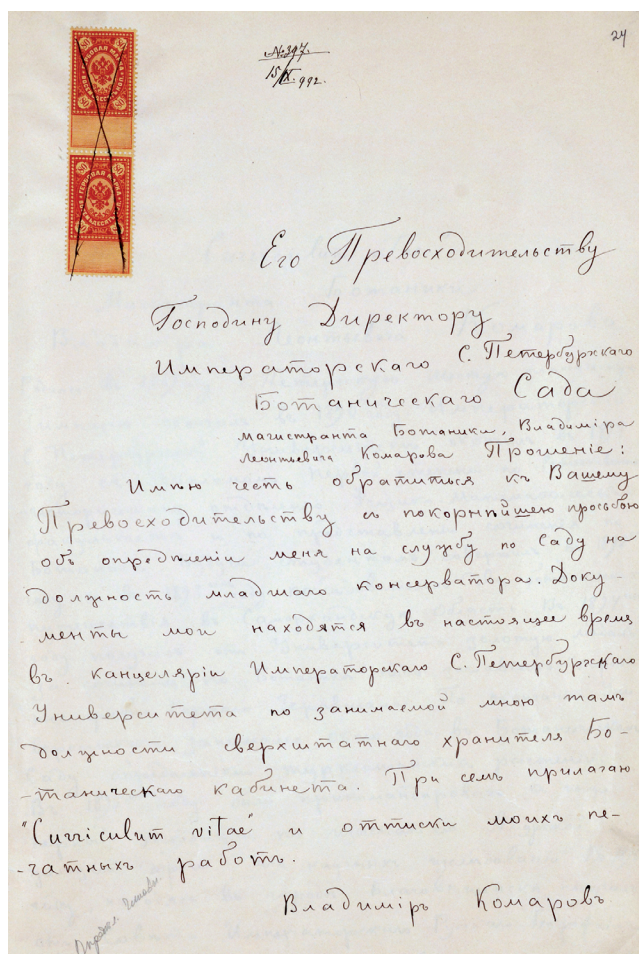 24
№ 397.
15/IX. 992.
Его Превосходительству
Господину Директору
Императорскаго С. Петербуржкаго
Ботаническаго Сада
магистранта Ботаники, Владиміра
Леонтьевича Комарова Прошеніе:
Имѣю честь обратиться къ Вашему
Превосходительству съ покорнѣйшею просьбою
объ опредѣленіи меня на службу по Саду на
должность младшаго консерватора. Доку-
менты мои находятся въ настоящее время
въ канцеляріи Императорскаго С. Петербуржкаго
Университета по занимаемой мною тамъ
должности сверхштатнаго хранителя Бо-
-таническаго кабинета. При семъ прилагаю
"Curriculum vitae" и оттиски моихъ пе-
-чатныхъ работъ.
Владиміръ Комаровъ